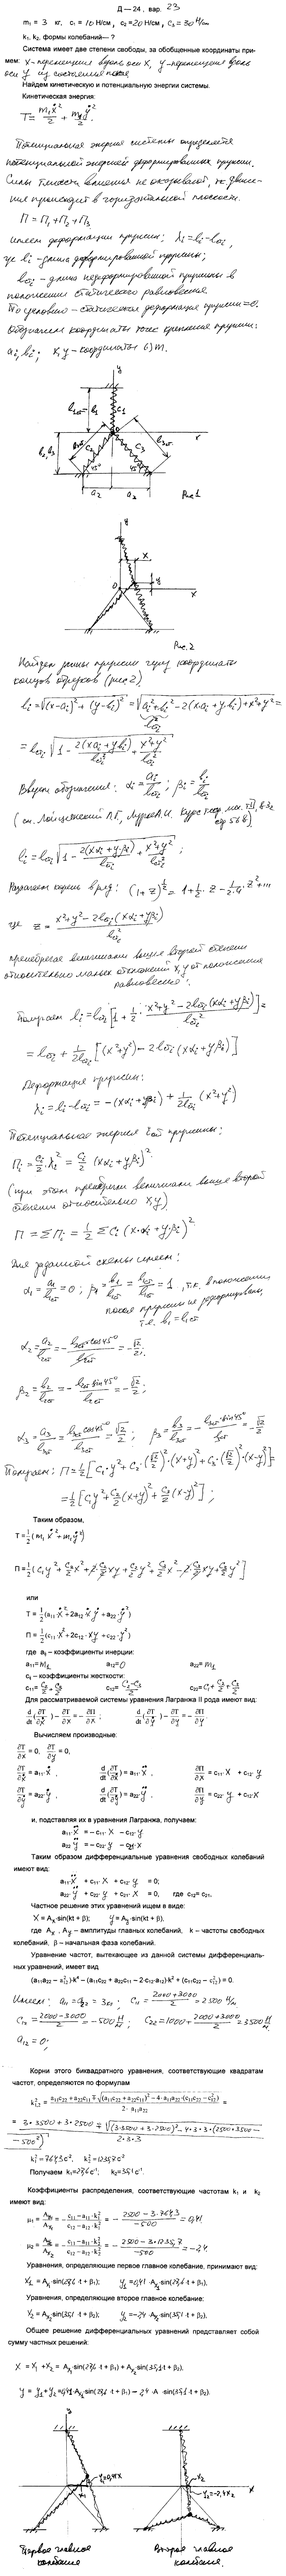 Д — 24 , вар. 23
m₁ = 3 кг, c₁ = 10 Н/см, c₂ = 20 Н/см, c₃ = 30 Н/см
k₁, k₂, формы колебаний— ?
Система имеет две степени свободы, за обобщенные координаты при-
мем: x - перемещения вдоль оси X, y - перемещения вдоль
оси y из состояния покоя
Находим кинетическую и потенциальную энергии системы.
Кинетическая энергия:
T = m₁ẋ²/2 + m₁ẏ²/2.
Потенциальная энергия системы определяется
потенциальной энергией деформированных пружин.
Силы тяжести влияния не оказывают, т.к. движе-
ния происходят в горизонтальной плоскости.
П = П₁ + П₂ + П₃
имеем деформации пружин: λi = li - l0i,
где li - длина деформированной пружины;
l0i - длина недеформированной пружины в
положении статического равновесия
По условию - статическая деформация пружин = 0.
Обозначим координаты точек крепления пружин:
ai, bi; x, y - координаты (·) m.
Рис 1
Рис. 2
Найдем длины пружин через координаты
концов отрезков (рис 2)
li = √((x-ai)² + (y-bi)²) = √(ai² + bi² - 2(xai + ybi) + x² + y²) =
= l0i √(1 - 2(xai + ybi)/l0i² + (x²+y²)/l0i²)
Введем обозначения: αi = ai/l0i; βi = bi/l0i
(см. Лойцянский Л.Г., Лурье А.И. Курс теор. мех. т II, § 32
стр 568)
li = l0i √(1 - 2(xαi + yβi)/l0i + (x²+y²)/l0i²);
Разлагаем корень в ряд: (1+z)^½ = 1 + ½·z - 1/(2·4)·z² + ...
где z = (x²+y² - 2l0i(xαi + yβi))/l0i²
пренебрегая величинами выше второй степени
относительно малых отклонений x, y от положения
равновесия:
Получаем li = l0i [1 + ½·(x²+y² - 2l0i(xαi + yβi))/l0i²] =
= l0i + 1/(2l0i) [(x²+y²) - 2l0i(xαi + yβi)]
Деформация пружин:
λi = li - l0i = -(xαi + yβi) + 1/(2l0i) (x²+y²)
Потенциальная энергия i-ой пружины:
Пi = ci/2 λi² = ci/2 (xαi + yβi)²
(при этом пренебрегли величинами выше второй
степени относительно x, y)
П = ΣПi = ½ Σci (x·αi + yβi)²
Для заданной схемы имеем:
α₁ = a₁/l10 = 0; β₁ = b₁/l10 = l10/l10 = 1, т.к. в положении
покоя пружины не деформированы,
т.е. b₁ = l10
α₂ = a₂/l20 = -l20 cos45°/l20 = -√2/2;
β₂ = b₂/l20 = -l20 sin45°/l20 = -√2/2;
α₃ = a₃/l30 = l30 cos45°/l30 = √2/2; β₃ = b₃/l30 = -l30·sin45°/l30 = -√2/2
Получаем: П = ½[c₁·y² + c₂·(√2/2)²·(x+y)² + c₃·(√2/2)²·(x-y)²] =
= ½[c₁y² + c₂/2 (x+y)² + c₃/2 (x-y)²];
Таким образом,
T = ½(m₁ẋ² + m₁ẏ²)
П = ½[c₁y² + c₂/2 x² + 2·c₂/2 xy + c₂/2 y² + c₃/2 x² - 2·c₃/2 xy + c₃/2 y²]
или
T = ½(a₁₁·ẋ² + 2a₁₂·ẋẏ + a₂₂·ẏ²)
П = ½(c₁₁·x² + 2c₁₂·xy + c₂₂·y²)
где aij – коэффициенты инерции:
a₁₁ = m₁ a₁₂ = 0 a₂₂ = m₁
cij – коэффициенты жесткости:
c₁₁ = c₂/2 + c₃/2 c₁₂ = (c₂-c₃)/2 c₂₂ = c₁ + c₂/2 + c₃/2
Для рассматриваемой системы уравнения Лагранжа II рода имеют вид:
d/dt(∂T/∂ẋ) – ∂T/∂x = – ∂П/∂x ; d/dt(∂T/∂ẏ) – ∂T/∂y = – ∂П/∂y
Вычисляем производные:
∂T/∂x = 0, ∂T/∂y = 0,
∂T/∂ẋ = a₁₁·ẋ , d/dt(∂T/∂ẋ) = a₁₁·ẍ , ∂П/∂x = c₁₁·x + c₁₂·y
∂T/∂ẏ = a₂₂·ẏ , d/dt(∂T/∂ẏ) = a₂₂·ÿ , ∂П/∂y = c₂₂·y + c₁₂·x
и, подставляя их в уравнения Лагранжа, получаем:
a₁₁·ẍ = – c₁₁·x – c₁₂·y
a₂₂·ÿ = – c₂₂·y – c₂₁·x
Таким образом дифференциальные уравнения свободных колебаний
имеют вид:
a₁₁·ẍ + c₁₁·x + c₁₂·y = 0;
a₂₂·ÿ + c₂₂·y + c₂₁·x = 0, где c₁₂ = c₂₁.
Частное решение этих уравнений ищем в виде:
x = Aₓ·sin(kt + β); y = A_y·sin(kt + β).
где Aₓ , A_y – амплитуды главных колебаний, k – частоты свободных
колебаний, β – начальная фаза колебаний.
Уравнение частот, вытекающее из данной системы дифференциаль-
ных уравнений, имеет вид
(a₁₁a₂₂ – a₁₂²)·k⁴ – (a₁₁c₂₂ + a₂₂c₁₁ – 2·c₁₂·a₁₂)·k² + (c₁₁c₂₂ – c₁₂²) = 0.
Имеем: a₁₁ = a₂₂ = 3 кг; c₁₁ = (2000+3000)/2 = 2500 Н/м
c₁₂ = (2000-3000)/2 = -500 Н/м; c₂₂ = 1000 + (2000+3000)/2 = 3500 Н/м
a₁₂ = 0;
Корни этого биквадратного уравнения, соответствующие квадратам
частот, определяются по формулам
k²₁,₂ = (a₁₁c₂₂ + a₂₂c₁₁ ∓ √((a₁₁c₂₂ + a₂₂c₁₁)² – 4·a₁₁a₂₂·(c₁₁c₂₂ – c₁₂²)))/(2·a₁₁a₂₂) =
= (3·3500 + 3·2500 ∓ √((3·3500 + 3·2500)² - 4·3·3·(2500·3500 -
- 500²)))/(2·3·3)
k₁² = 764,3 с⁻²; k₂² = 1235,7 с⁻²
Получаем k₁ = 27,6 с⁻¹; k₂ = 35,1 с⁻¹.
Коэффициенты распределения, соответствующие частотам k₁ и k₂
имеют вид:
μ₁ = A_y₁/Aₓ₁ = – (c₁₁ – a₁₁·k₁²)/(c₁₂ – a₁₂·k₁²) = – (2500 - 3·764,3)/(-500) = 0,41.
μ₂ = A_y₂/Aₓ₂ = – (c₁₁ – a₁₁·k₂²)/(c₁₂ – a₁₂·k₂²) = – (2500 - 3·1235,7)/(-500) = -2,4.
Уравнения, определяющие первое главное колебание, принимают вид:
x₁ = Aₓ₁·sin(27,6·t + β₁); y₁ = 0,41·Aₓ₁·sin(27,6·t + β₁).
Уравнения, определяющие второе главное колебание:
x₂ = Aₓ₂·sin(35,1·t + β₂); y₂ = -2,4·Aₓ₂·sin(35,1·t + β₂).
Общее решение дифференциальных уравнений представляет собой
сумму частных решений:
x = x₁ + x₂ = Aₓ₁·sin(27,6·t + β₁) + Aₓ₂·sin(35,1·t + β₂),
y = y₁ + y₂ = 0,41·Aₓ₁·sin(27,6·t + β₁) – 2,4·A·sin(35,1·t + β₂).
y₁ = 0,41x
y₂ = -2,4x₂
Первое главное
колебание
Второе главное
колебание.